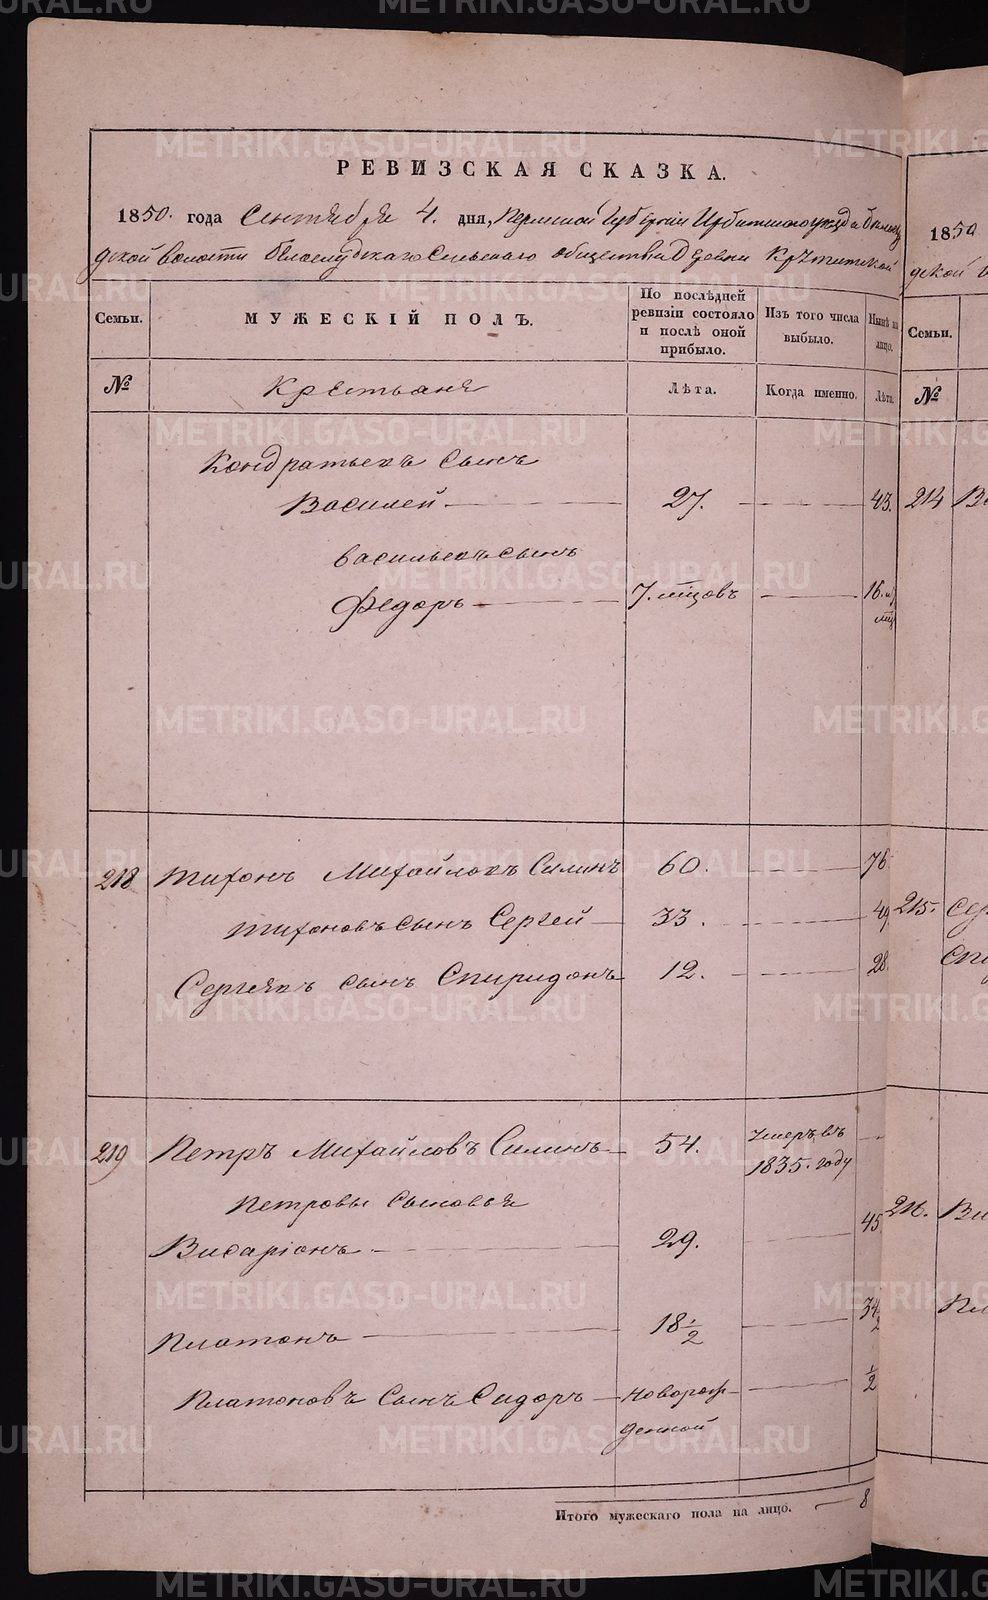 METRIKI.GASO-URAL.RU
РЕВИЗСКАЯ СКАЗКА.
1850. года Сентября 4. дня, Пермской Губернии Ирбитского уезда
волости Сельского общества Деревни
Семьи.
МУЖЕСКІЙ ПОЛЪ.
По послѣдней
ревизіи состояло
и послѣ оной
прибыло.
Изъ того числа
выбыло.
Нынѣ на
лицо.
№
Крестьяне
Лѣта.
Когда именно.
Лѣта.
Кондратьевъ сынъ
Василей 27. 43.
Васильевъ сынъ
Федоръ 7. мцовъ 16.
218 Тихонъ Михайловъ Силинъ 60. 76.
Тихоновъ сынъ Сергей 33. 49.
Сергеявъ сынъ Спиридонъ 12. 28.
219 Петръ Михайловъ Силинъ 54. Умеръ въ
1835. году
Петровы Сыновья
Висаріонъ 29. 45
Платонъ 18 1/2 34 1/2
Платоновъ Сынъ Сидоръ новорож-
денной 1/2
Итого мужескаго пола на лицо. 8
1850
дской
Семьи.
№
214
215.
216.